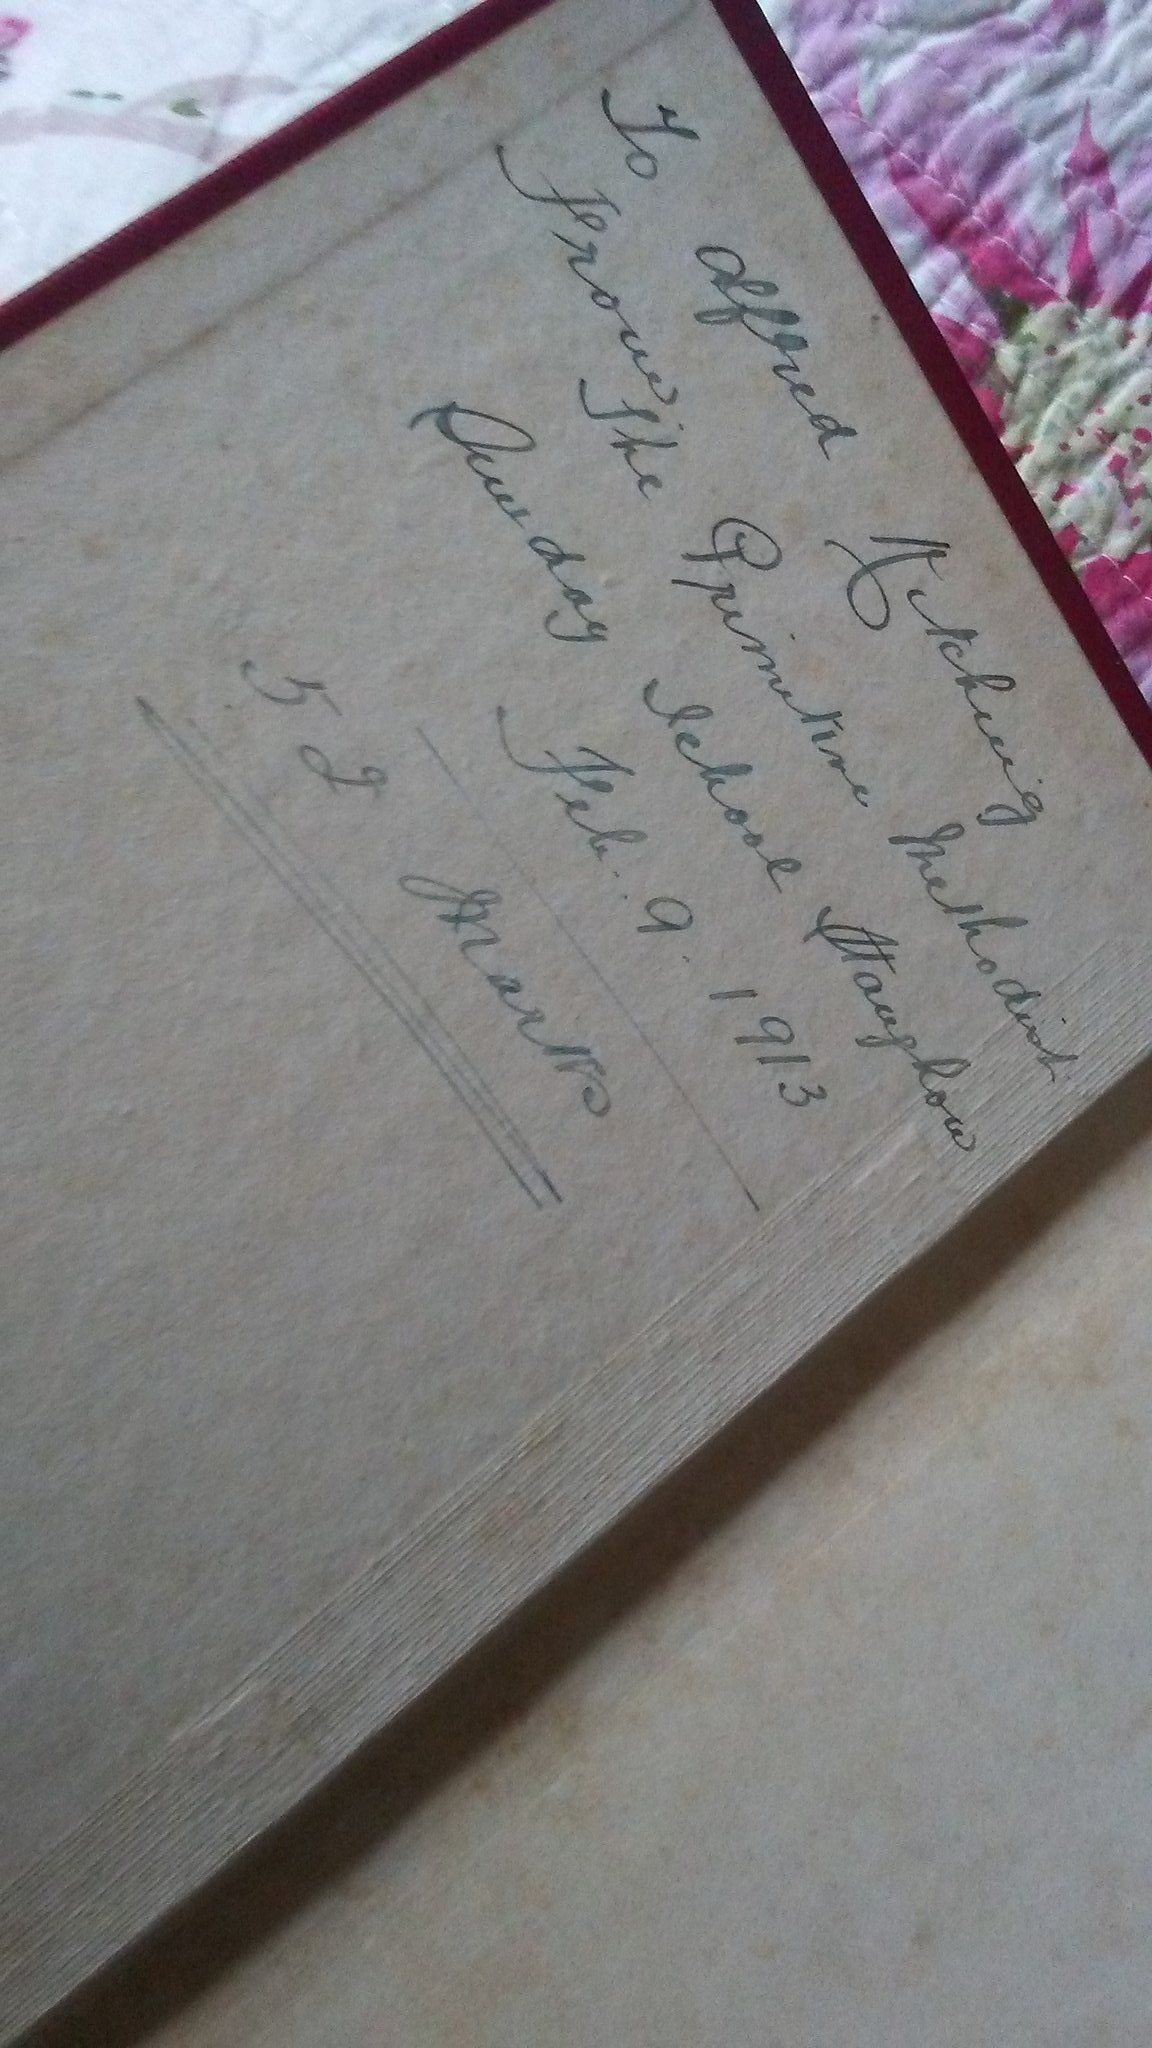 To Alfred Kitching
From the Primitive Methodist
Sunday School Haughow
Feb. 9. 1913
52 Marks